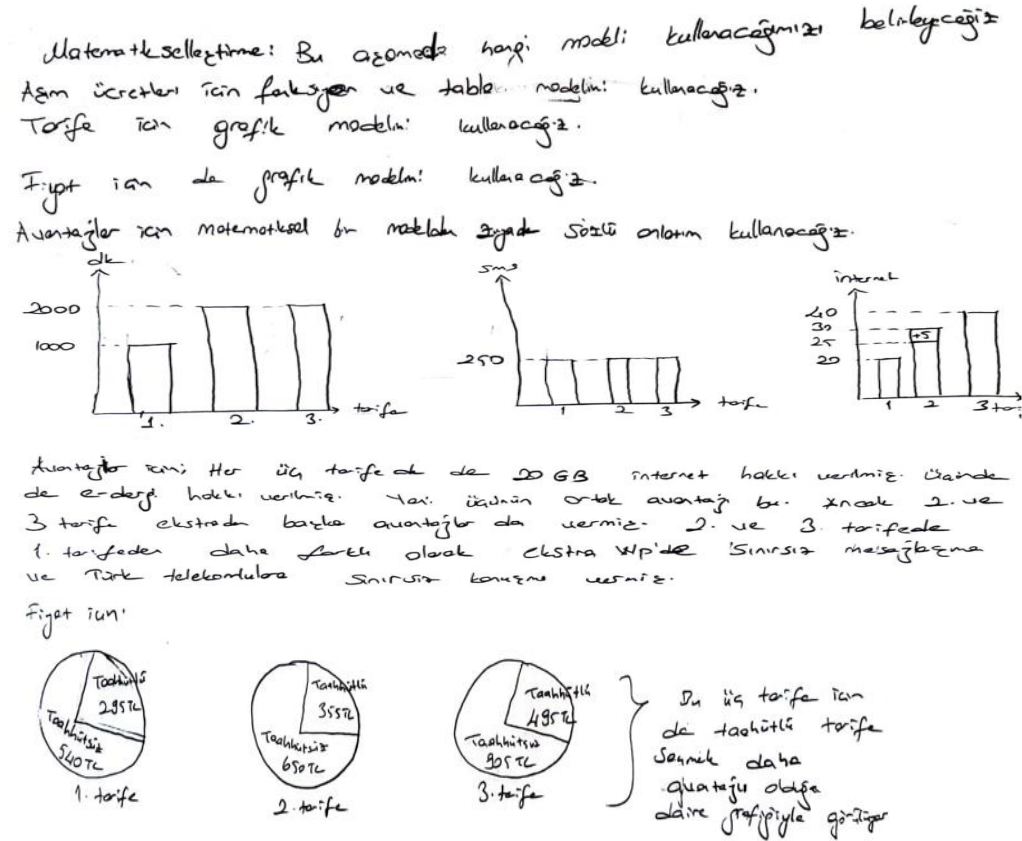 Matematikselleştirme: Bu aşamada hangi modeli kullanacağımızı belirleyeceğiz
Aşım ücretleri için fonksiyon ve tablo modelini kullanacağız.
Tarife için grafik modelini kullanacağız.
Fiyat için de grafik modelini kullanacağız.
Avantajlar için matematiksel bir modelden ziyade sözlü anlatım kullanacağız.
dk
2000
1000
1. 2. 3. tarife
sms
250
1 2 3 tarife
internet
40
30
25
20
+5
1 2 3 tar
Avantajlar için; Her üç tarifede de 20 GB internet hakkı verilmiş. Üçünde
de e-dergi hakkı verilmiş. Yani üçünün ortak avantajı bu. Ancak 2. ve
3 tarife ekstradan başka avantajlar da vermiş. 2. ve 3. tarifede
1. tarifeden daha farklı olarak ekstra Wp'de sınırsız mesajlaşma
ve Türk telekomlulara sınırsız konuşma vermiş.
Fiyat için:
Taahhütlü
295 TL
Taahhütsüz
540 TL
1. tarife
Taahhütlü
355 TL
Taahhütsüz
650 TL
2. tarife
Taahhütlü
495 TL
Taahhütsüz
905 TL
3. tarife
Bu üç tarife için
de taahütlü tarife
seçmek daha
avantajlı olduğu
daire grafiğiyle görülüyor